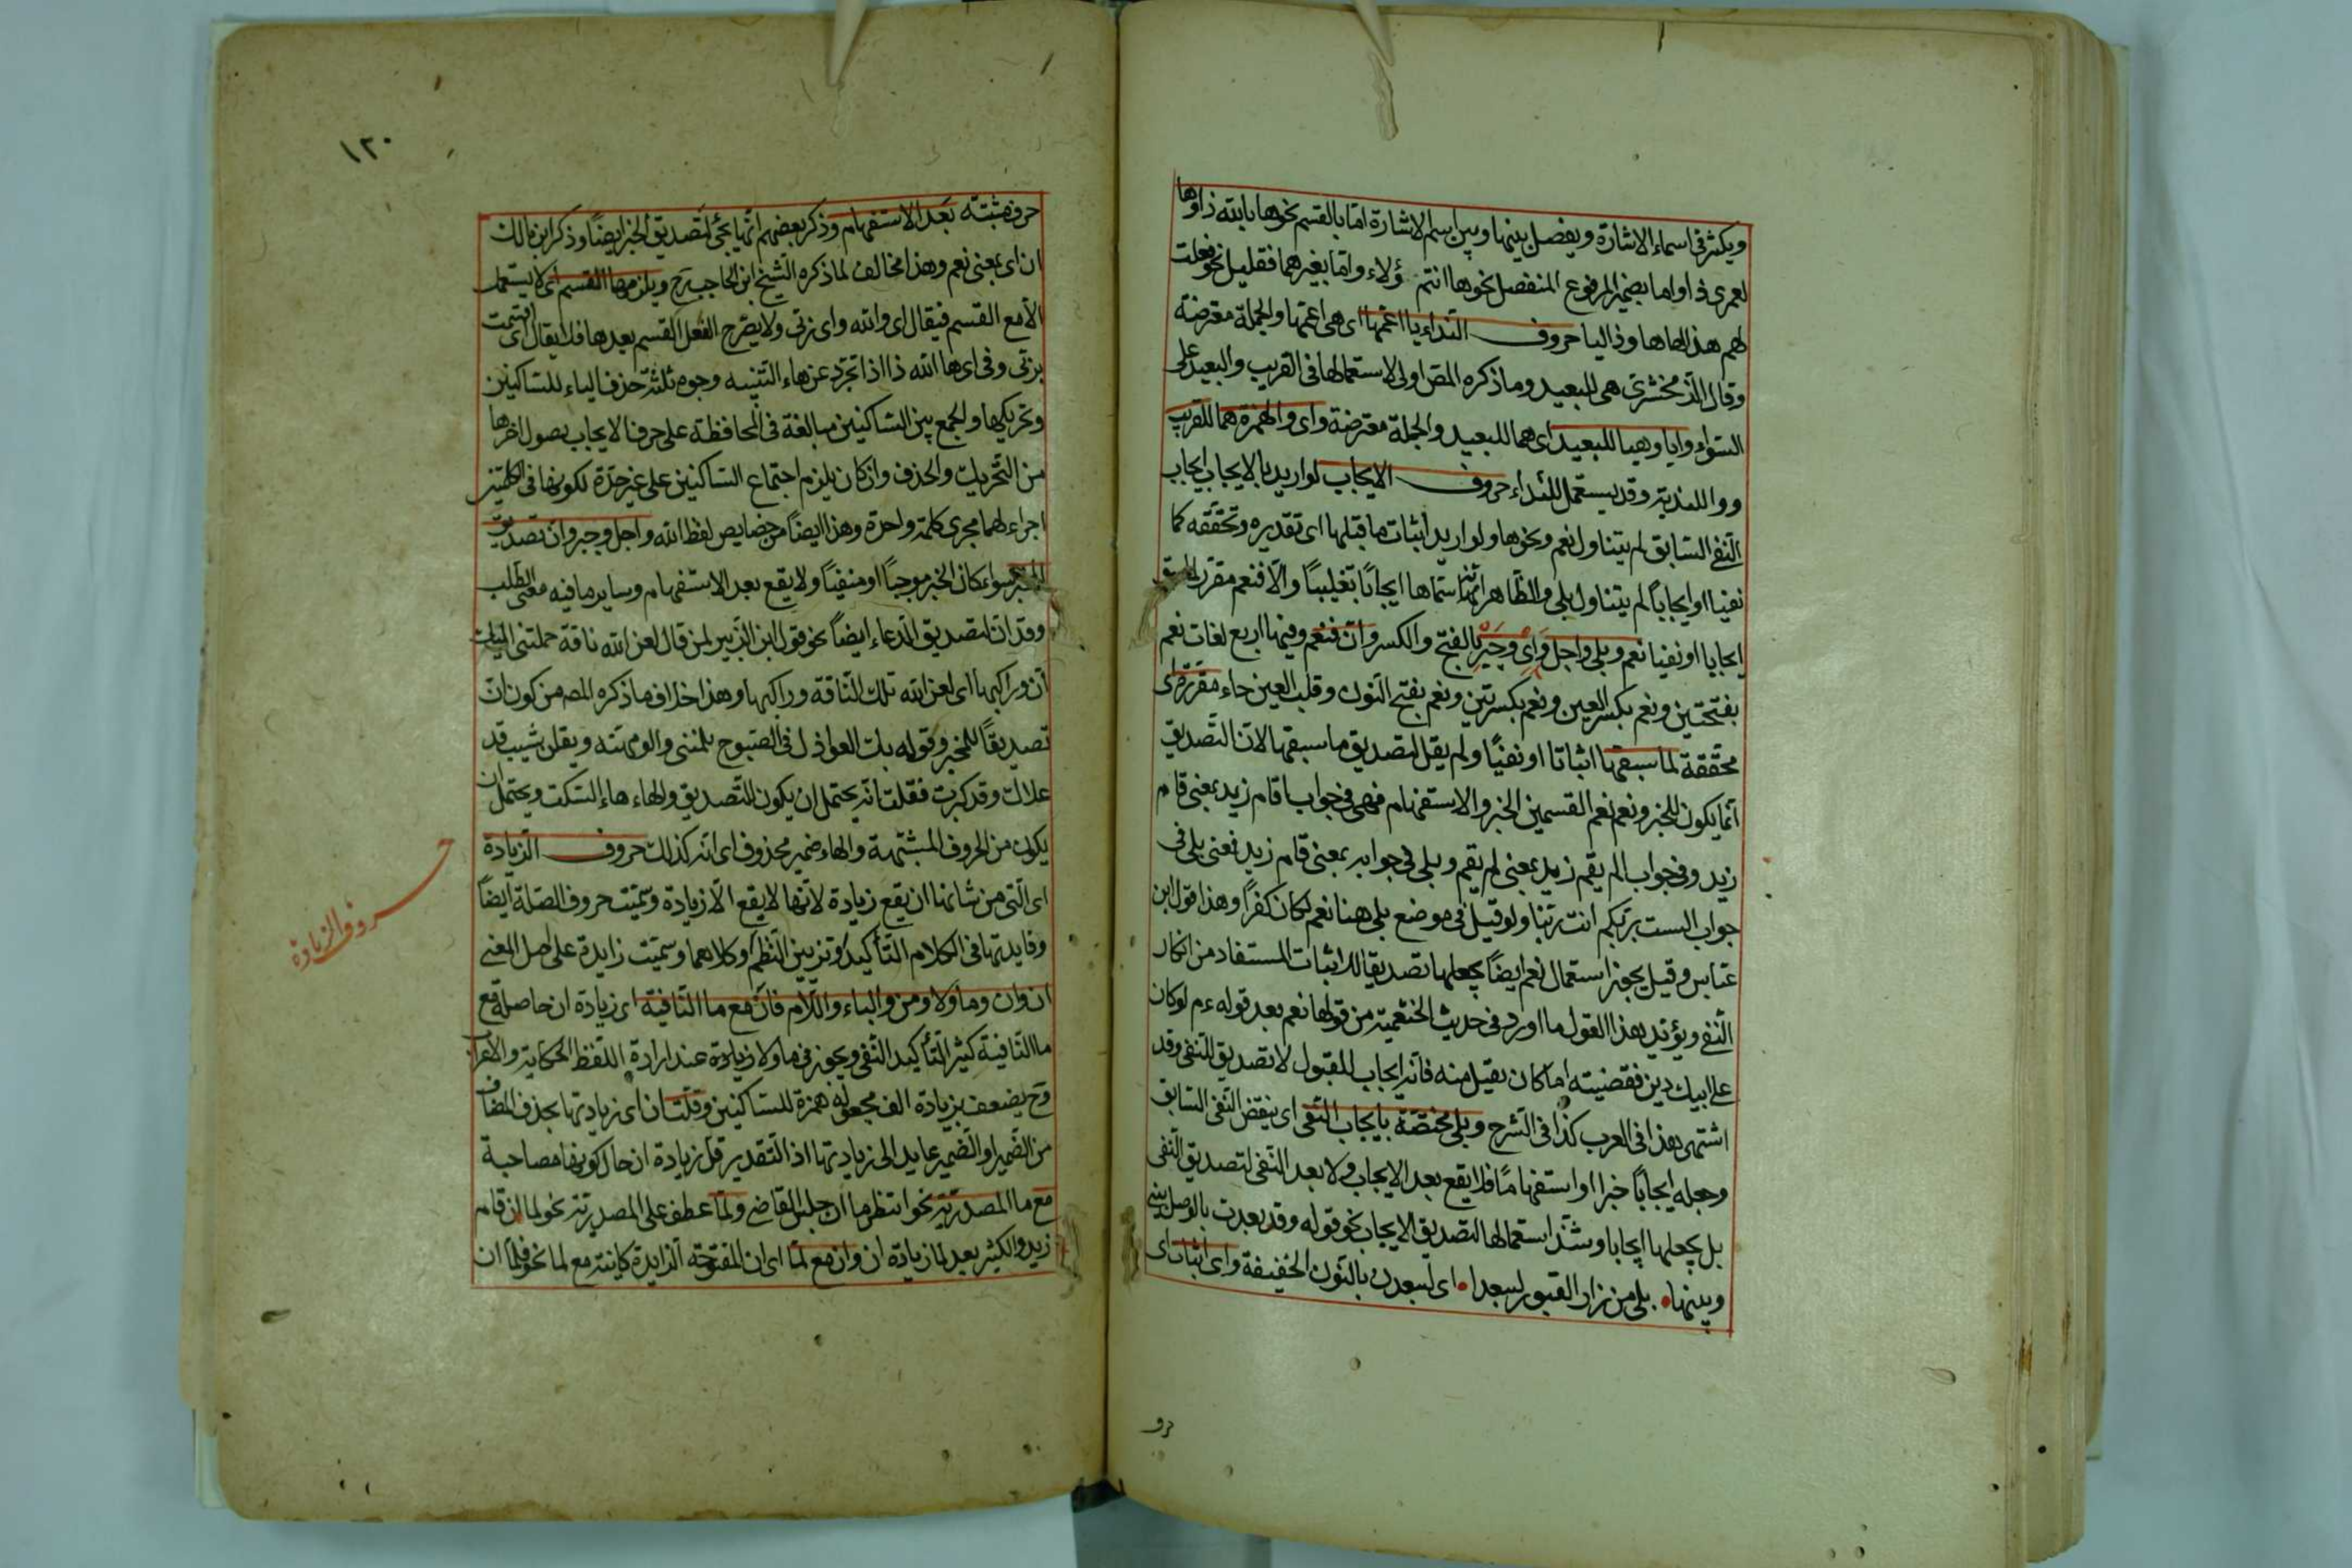 ويكثر في اسماء الاشارة ويفصل بينها وبين اسم الاشارة امّا بالقسم نحو ها بالله ذا وها
لعمري ذا واما بضمير المرفوع المنفصل نحو ها انتم ؤلاء وامّا بغيرهما فقليل نحو فعلت
لهم هذا لها ها وذا ليا حروف النّداء يا اعمّها اي هي اعمّها والجملة معترضة
وقال الزّمخشريّ هي للبعيد وما ذكره المص اولى لاستعمالها في القريب والبعيد على
السّواء وايا وهيا للبعيد اي هما للبعيد والجملة معترضة واي والهمزة هما للقريب
ووا للندبة وقد يستعمل للنّداء حروف الايجاب لو اريد بالايجاب ايجاب
النّفي السّابق لم يتناول نعم ونحوها ولو اريد اثبات ما قبلها اي تقديره وتحقّقه كما
نفيا او ايجاباً لم يتناول بلى والظّاهر انّه استماها ايجابًا تغليبًا والّا فنعم مقرّر لما سبق
ايجابا او نفيا نعم وبلى واجل واي وجير بالفتح والكسر وانّ فنعم وفيها اربع لغات نعم
بفتحتين ونعم بكسر العين ونعم بكسرتين ونعم بفتح النّون وقلب العين حاء مقرّرة اي
محقّقة لما سبقها اثباتا او نفيًا ولم يقل لتصديق ما سبقها لانّ التّصديق
انّما يكون للخبر ونعم نعم القسمين الخبر والاستفهام فهي في جواب اقام زيد بمعنى قام
زيد وفي جواب الم يقم زيد بمعنى لم يقم وبلى في جوابه بمعنى قام زيد فمعنى بلى في
جواب الست بربّكم انت ربّنا ولو قيل في موضع بلى هنا نعم لكان كفرًا وهذا قول ابن
عبّاس وقيل يجوز استعمال نعم ايضًا بجعلها تصديقا للاثبات المستفاد من انكار
النّفي ويؤيّد هذا القول ما اورد في حديث الخثعميّة من قولها نعم بعد قوله عم لو كان
على ابيك دين فقضيته اما كان يقبل منه فانّه ايجاب للقبول لا تصديق للنّفي وقد
اشتهر هذا في العرب كذا في الشّرح وبلى مختصّة بايجاب النّفي اي ينقض النّفي السّابق
وجعله ايجابًا خبرا او استفهامًا فلا يقع بعد الايجاب ولا بعد النّفي لتصديق النّفي
بل يجعلها ايجابا وشذّ استعمالها لتصديق الايجاب نحو قوله وقد بعدت بالوصل بيني
وبينها بلى من زار القبور ليبعدا اي ليبعدن بالنّون الخفيفة واي اثبات اي
حرف مثبته بعد الاستفهام وذكر بعضهم انّها يجيء لتصديق الخبر ايضًا وذكر ابن مالك
ان اي بمعنى نعم وهذا مخالف لما ذكره الشّيخ ابن الحاجب رح ويلزمها القسم اي لا يستعمل
الّا مع القسم فيقال اي والله واي ربّي ولا يصرّح الفعل القسم بعدها فلا يقال اي اقسمت
بربّي وفي اي ها الله ذا اذا تجرّد عن هاء التّنبيه وجوه ثلثة حذف الياء للسّاكنين
وتحريكها والجمع بين السّاكنين مبالغة في المحافظة على حرف الايجاب بصول اخرها
من التّحريك والحذف وان كان يلزم اجتماع السّاكنين على غير حدّه لكونها في كلمتين
اجراء لهما مجرى كلمة واحدة وهذا ايضاً من خصايص لفظ الله واجل وجير وانّ تصديق
للمخبر سواء كان الخبر موجبًا او منفيًا ولا يقع بعد الاستفهام وساير ما فيه معنى الطّلب
وقد انّ لتصديق الدعاء ايضاً نحو قول ابن الزّبير لمن قال لعن الله ناقة حملتني اليك
انّ وراكبها اي لعن الله تلك النّاقة وراكبها وهذا خلاف ما ذكره المص من كون انّ
تصديقًا للمخبر وقوله بكت العواذل في الصّبوح يلمنني والومهنّه ويقلن شيب قد
علاك وقد كبرت فقلت انّه يحتمل ان يكون للتّصديق والهاء هاء السّكت ويحتمل ان
يكون من الحروف المشبّهة والهاء ضمير محذوف اي انّه كذلك حروف الزّيادة
اي الّتي من شانها ان يقع زيادة لانّها لا يقع الّا زيادة وسمّيت حروف الصّلة ايضًا
وفايدتها في الكلام التّأكيد وتزيين النّظم وكلاهما وسمّيت زايدة على اصل المعنى
ان وان وما ولا ومن والباء واللّام فان مع ما النّافية اي زيادة ان حاصلة مع
ما النّافية كثير لتأكيد النّفي ويجوز في ما ولا زيادة عند ارادة اللّفظ الحكاية والاعراب
وح يضعف بزيادة الف مجعولة همزة للسّاكنين وقلّت ان اي زيادتها بحذف المضاف
من الضّمير او الضّمير عايد الى زيادتها اذ التّقدير قلّ زيادة ان حال كونها مصاحبة
مع ما المصدريّة نحو انتظر ما ان جلس القاضي ولمّا عطف على المصدريّة نحو لما ان قام
زيد والكثير بعد لما زيادة ان وان مع لمّا اي ان المفتوحة الزايدة كاينة مع لما نحو فلمّا ان
حروف الزيادة
١٣٠